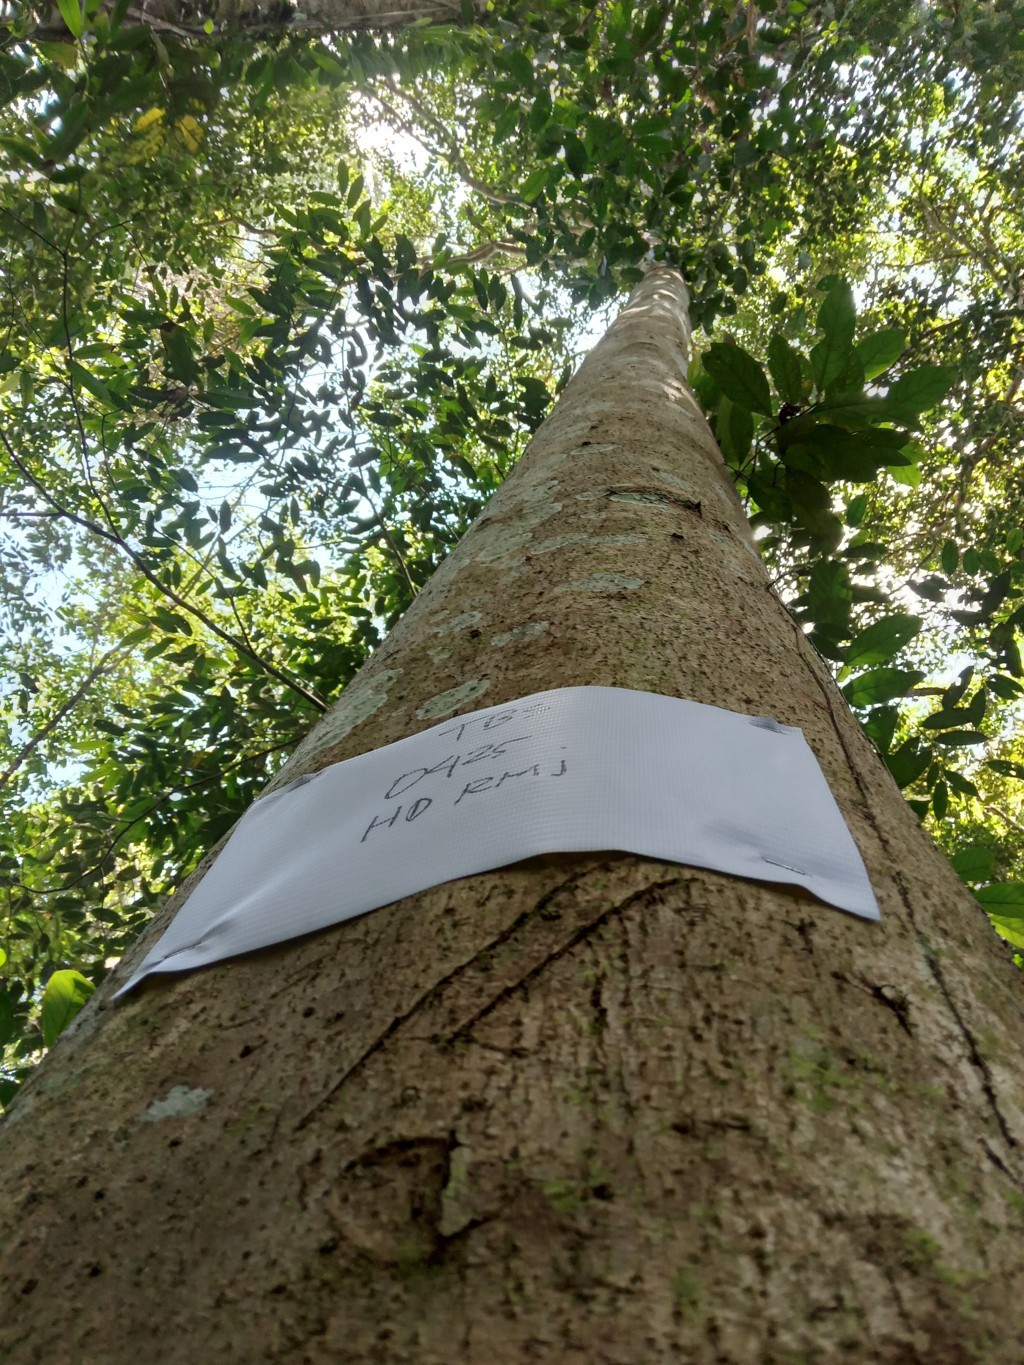 TBS
0425
HD RMJ